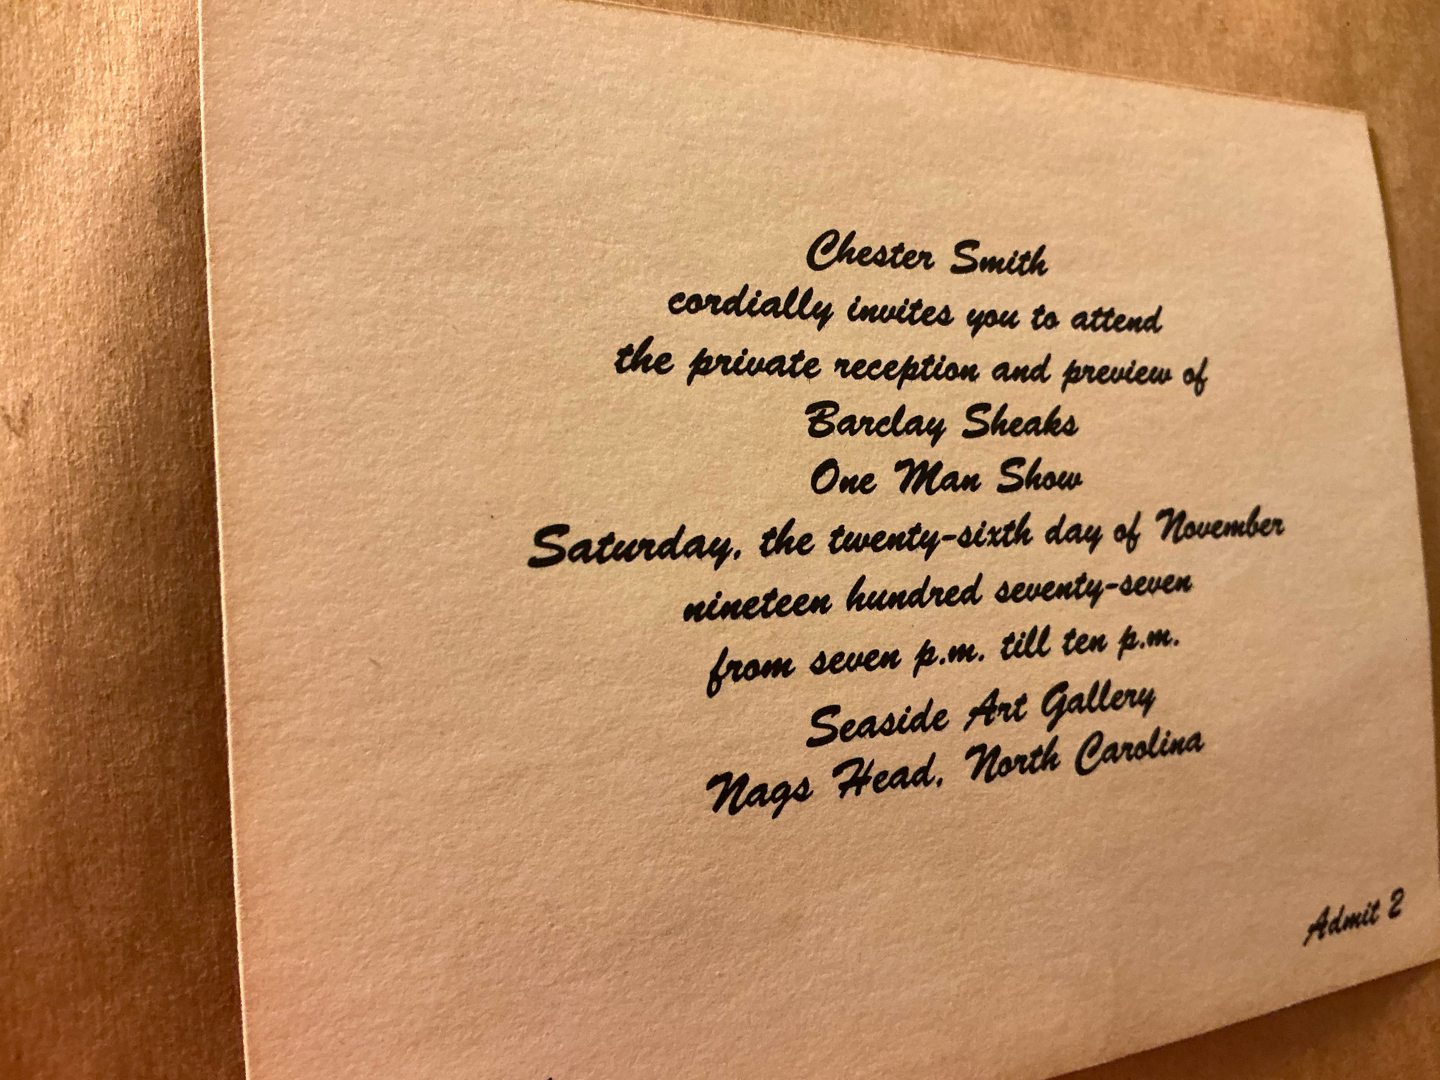 Chester Smith
cordially invites you to attend
the private reception and preview of
Barclay Sheaks
One Man Show
Saturday, the twenty-sixth day of November
nineteen hundred seventy-seven
from seven p.m. till ten p.m.
Seaside Art Gallery
Nags Head, North Carolina
Admit 2